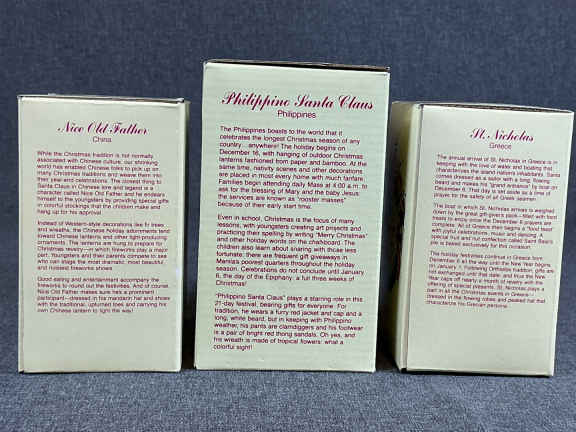 Nice Old Father
China
While the Christmas tradition is not normally
associated with Chinese culture, our shrinking
world has enabled Chinese folks to pick up on
many Christmas traditions and weave them into
their year-end celebrations. The closest thing to
Santa Claus in Chinese lore and legend is a
character called Nice Old Father and he endears
himself to the youngsters by providing special gifts
in colorful stockings that the children make and
hang up for his approval.
Instead of Western-style decorations like trees
and wreaths, the Chinese holiday adornments tend
toward Chinese lanterns and other light-producing
ornaments. The lanterns are hung to prepare for
Christmas revelry—in which fireworks play a major
part. Youngsters and their parents compete to see
who can stage the most dramatic, most beautiful,
and noisiest fireworks shows.
Good eating and entertainment accompany the
fireworks to round out the festivities. And of course,
Nice Old Father makes sure he's a prominent
participant—dressed in his mandarin hat and shoes
with the traditional, upturned toes and carrying his
own Chinese lantern to light the way!
Philippino Santa Claus
Philippines
The Philippines boasts to the world that it
celebrates the longest Christmas season of any
country...anywhere! The holiday begins on
December 16, with hanging of outdoor Christmas
lanterns fashioned from paper and bamboo. At the
same time, nativity scenes and other decorations
are placed in most every home with much fanfare.
Families begin attending daily Mass at 4:00 a.m. to
ask for the blessing of Mary and the baby Jesus:
the services are known as "rooster masses"
because of their early start time.
Even in school, Christmas is the focus of many
lessons, with youngsters creating art projects and
practicing their spelling by writing "Merry Christmas"
and other holiday words on the chalkboard. The
children also learn about sharing with those less
fortunate: there are frequent gift giveaways in
Manila's poorest quarters throughout the holiday
season. Celebrations do not conclude until January
6, the day of the Epiphany: a full three weeks of
Christmas!
"Philippino Santa Claus" plays a starring role in this
21-day festival, bearing gifts for everyone. For
tradition, he wears a furry red jacket and cap and a
long, white beard, but in keeping with Philippino
weather, his pants are clamdiggers and his footwear
is a pair of bright red thong sandals. Oh yes, and
his wreath is made of tropical flowers: what a
colorful sight!
St. Nicholas
Greece
The annual arrival of St. Nicholas in Greece is in
keeping with the love of water and boating that
characterizes the island nation's inhabitants. Santa
comes dressed as a sailor with a long, flowing
beard and makes his "grand entrance" by boat on
December 6. That day is set aside as a time of
prayer for the safety of all Greek seamen.
The boat in which St. Nicholas arrives is weighed
down by the great gift-giver's pack—filled with food
treats to enjoy once the December 6 prayers are
complete. All of Greece then begins a "food feast"
with joyful celebrations, music and dancing. A
special fruit and nut confection called Saint Basil's
pie is baked exclusively for this occasion.
The holiday festivities continue in Greece from
December 6 all the way until the New Year begins
on January 1. Following Orthodox tradition, gifts are
not exchanged until that date, and thus the New
Year caps off nearly a month of revelry with the
offering of special presents. St. Nicholas plays a
part in all the Christmas scenes in Greece—
dressed in the flowing robes and peaked hat that
characterize his Grecian persona.